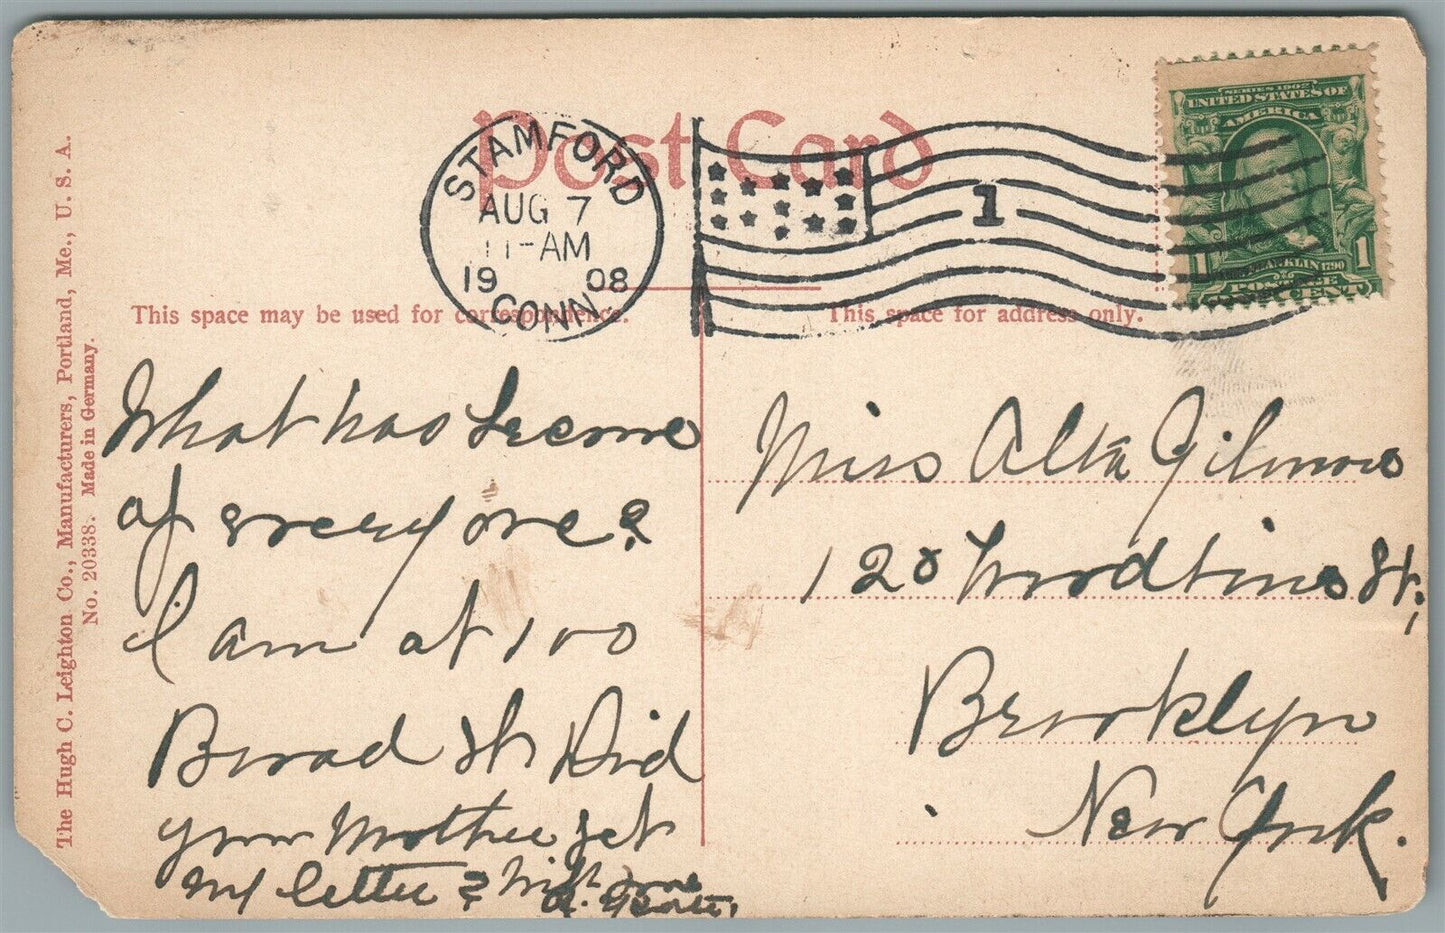 Post Card
STAMFORD
AUG 7
11-AM
19 08
CONN.
1
SERIES 1902
UNITED STATES OF
AMERICA
FRANKLIN 1790
1 1
POSTAGE
ONE CENT
This space may be used for correspondence.
This space for address only.
The Hugh C. Leighton Co., Manufacturers, Portland, Me., U. S. A.
No. 20338. Made in Germany.
What has become
of everyone?
I am at 100
Broad St Did
your Mother get
my letter? With love
Miss Alta Gilmore
120 Woodbine St.,
Brooklyn
New York.